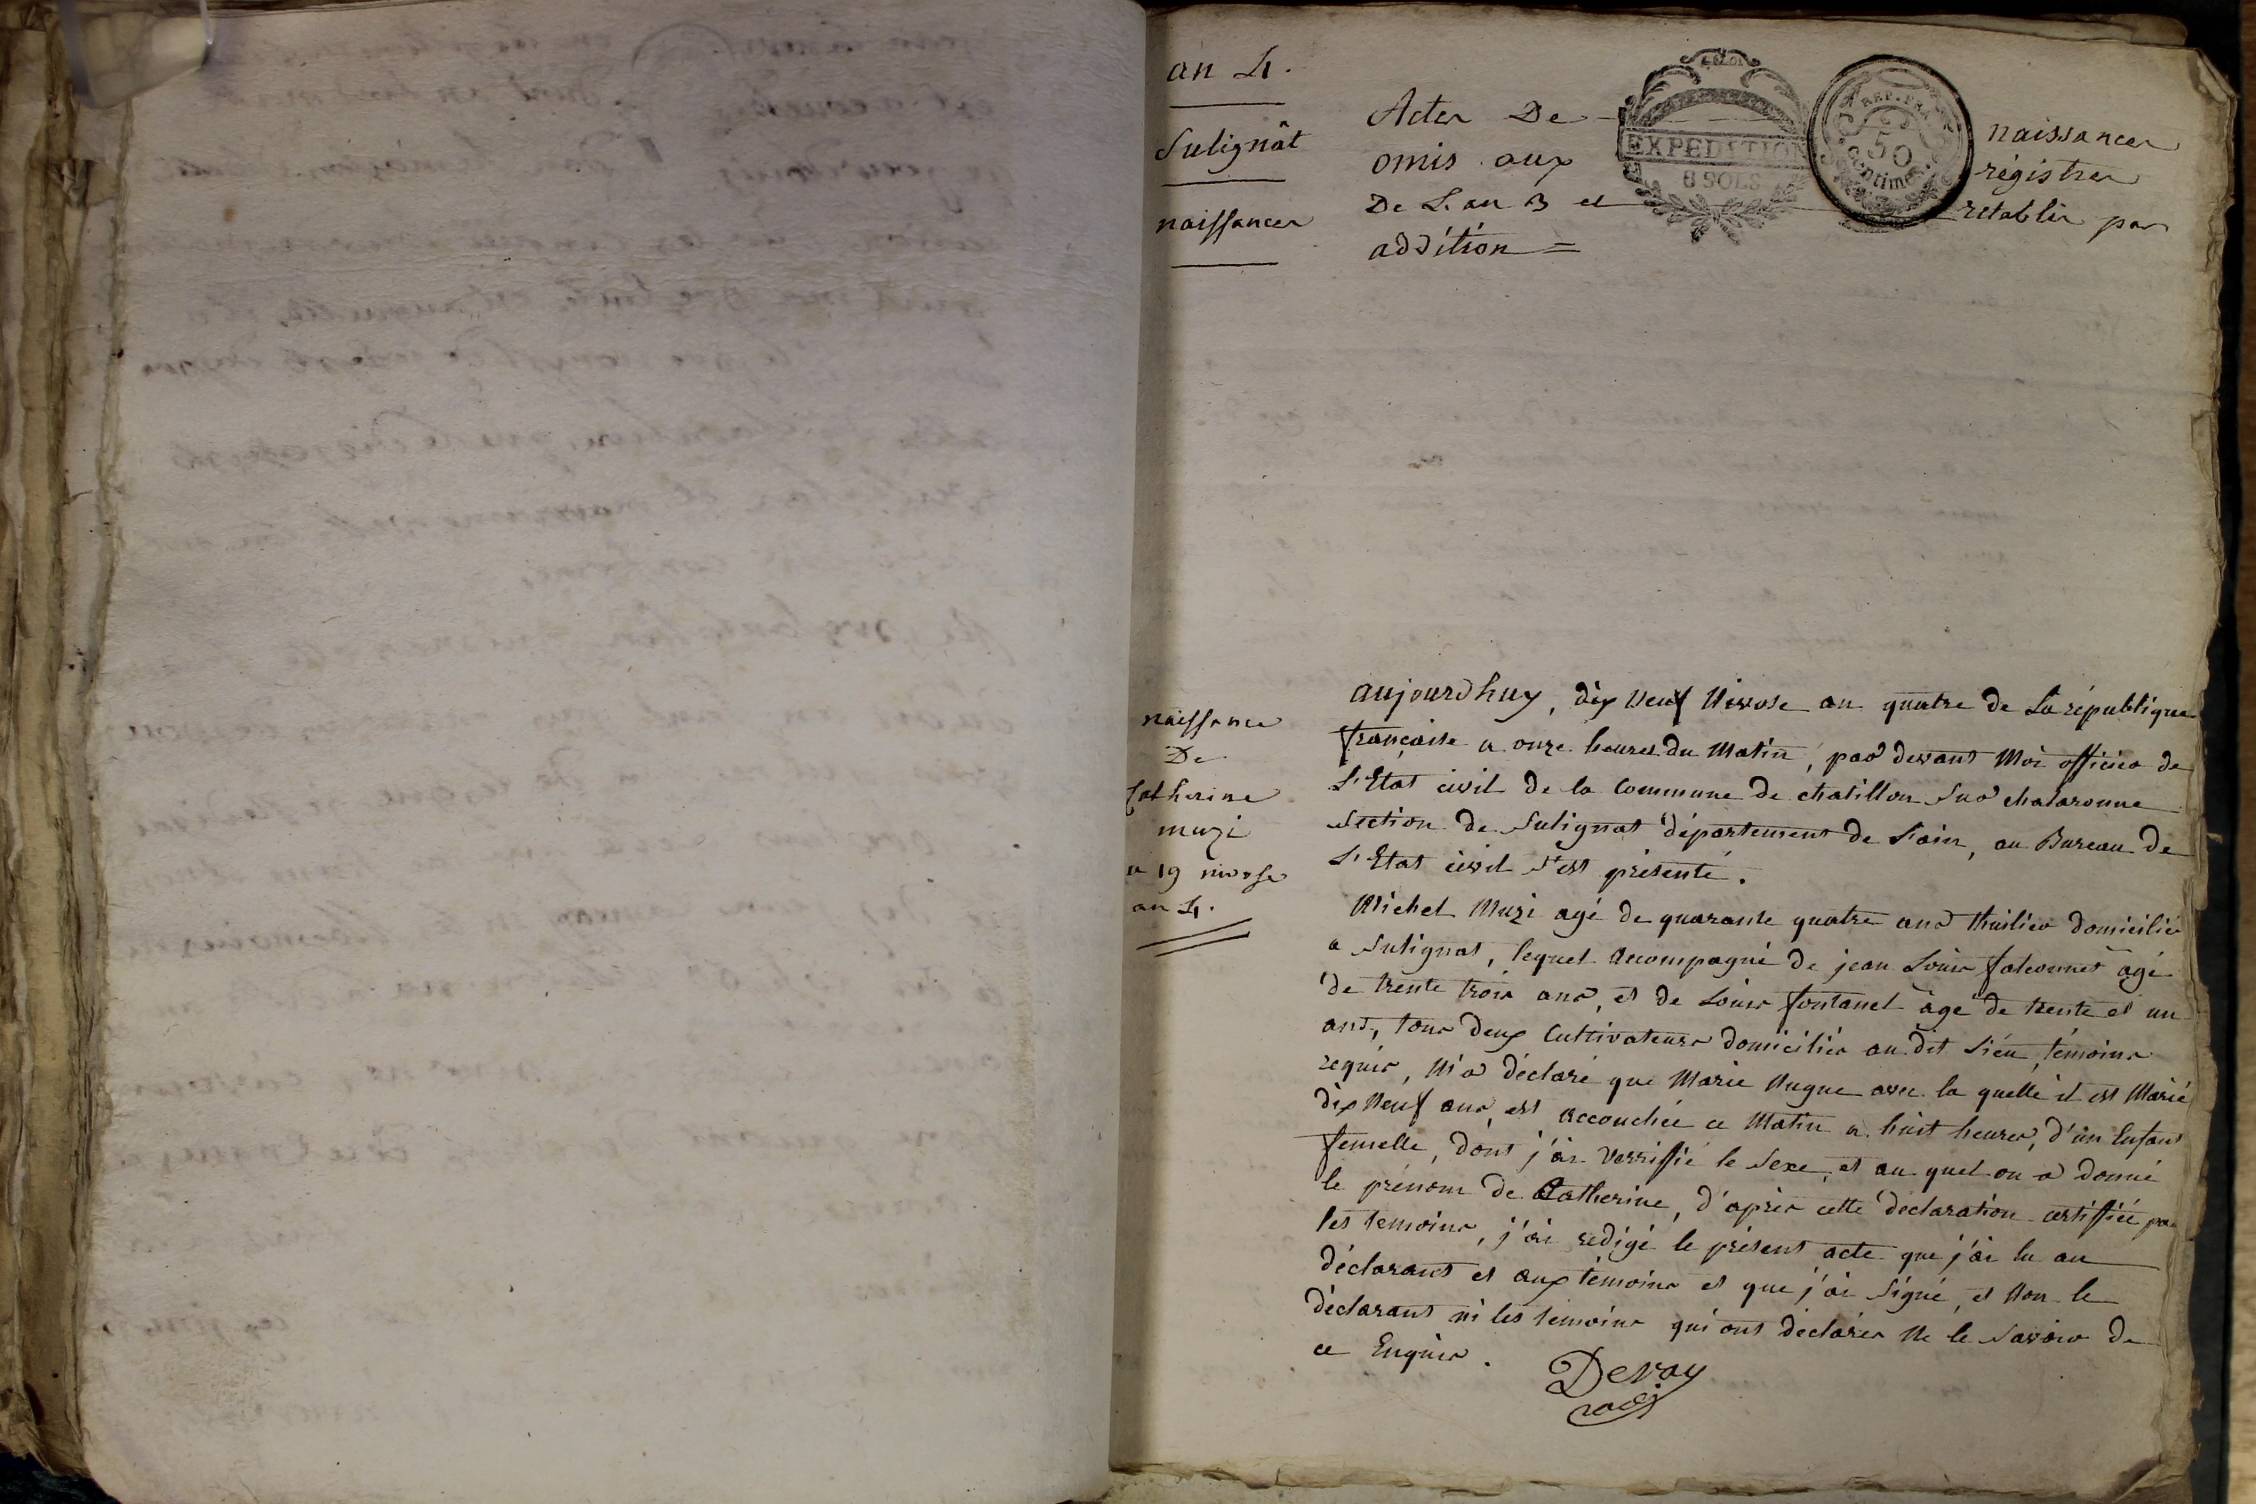 an 4.
Sulignat
naissances
Actes De naissances
omis aux régistres
De L'an 3 et rétablis par
addition =
EXPEDITION
8 SOLS
REP. FRA.
50
centimes
naissance
De
Catherine
muzi
19 nivose
an 4.
aujourdhuy, dix neuf Nivose an quatre de La république
française a onze heures du Matin, par devant Moi officier de
L'Etat civil de la Commune de chatillon sur chalaronne
section de Sulignat département de L'ain, au Bureau de
L'Etat civil s'est présenté.
Michel Muzi agé de quarante quatre ans thuilier domicilié
a Sulignat, lequel accompagné de jean Louis falconnet agé
de trente trois ans, et de Louis fontanel agé de trente et un
ans, tous deux Cultivateurs domiciliés au dit Lieu, témoins
requis, M'a déclaré que Marie Nugue avec la quelle il est Marié
dix Neuf ans, est accouchée ce Matin a huit heures, d'un Enfant
femelle, dont j'ai verriffié le Sexe, et au quel on a donné
le prénom de Catherine, d'après cette déclaration certiffiée par
les temoins, j'ai redigé le présent acte que j'ai lu au
déclarant et aux témoins et que j'ai signé, et Non le
déclarant ni les temoins qui ont déclarés Ne le savoir de
ce Enquis.
Deray